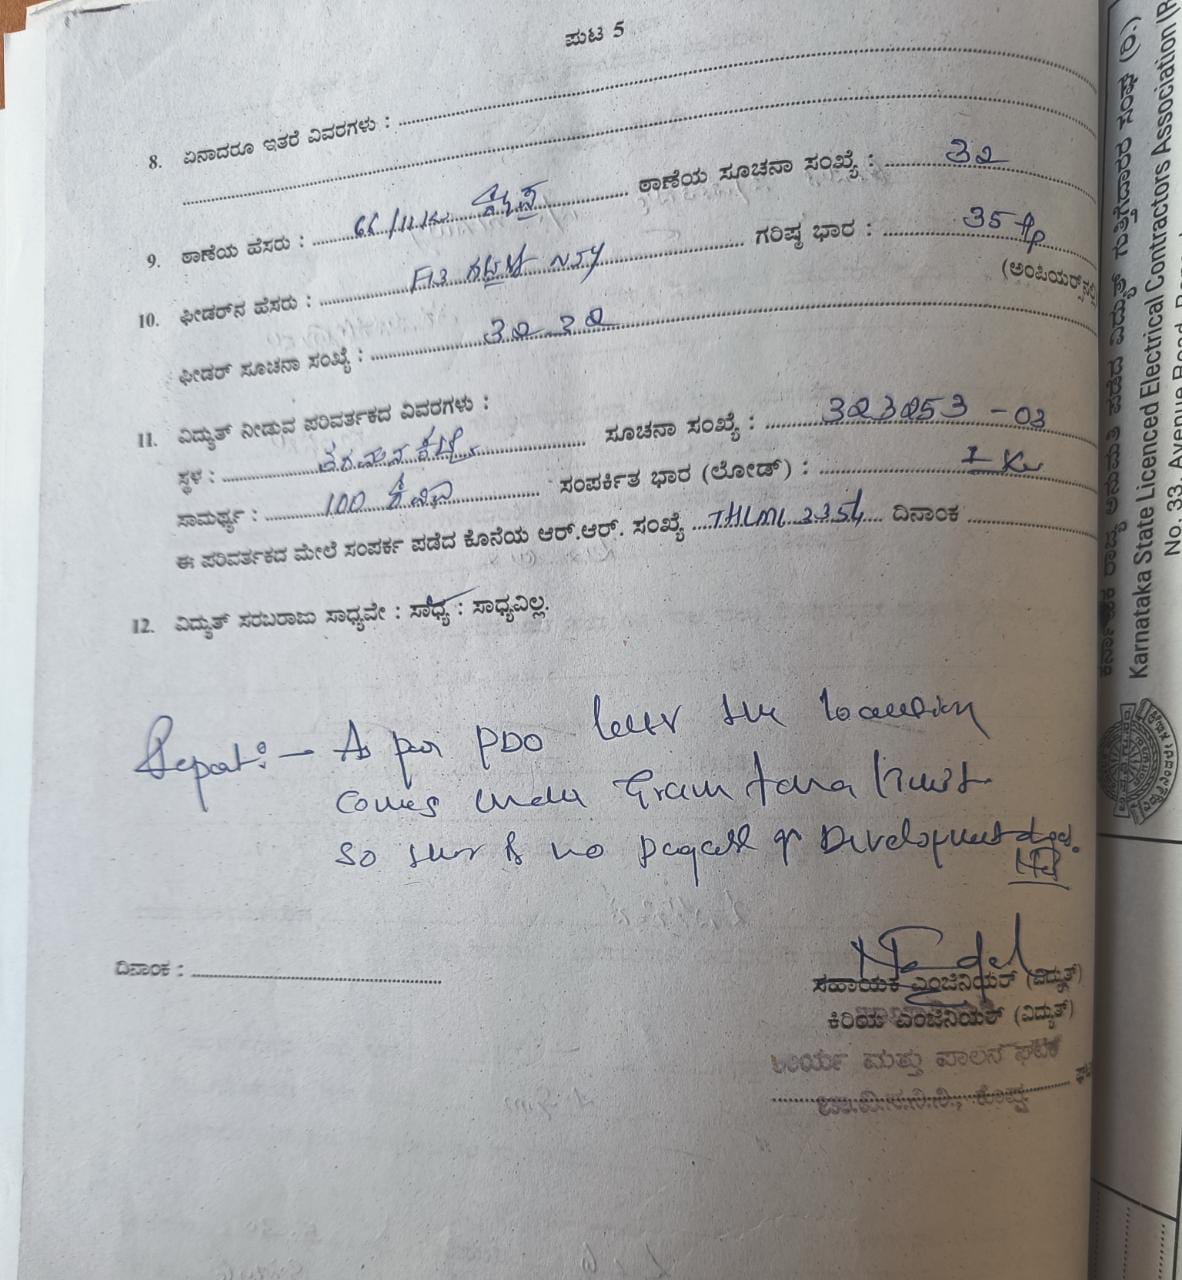 ಪುಟ 5
8. ಏನಾದರೂ ಇತರೆ ವಿವರಗಳು :
9. ಠಾಣೆಯ ಹೆಸರು : 66/11 ಕೊಪ್ಪ ಠಾಣೆಯ ಸೂಚನಾ ಸಂಖ್ಯೆ : 32
10. ಫೀಡರ್‌ನ ಹೆಸರು : F13 NJY ಗರಿಷ್ಠ ಭಾರ : 35
(ಅಂಪಿಯರ್‌ನಲ್ಲಿ
ಫೀಡರ್ ಸೂಚನಾ ಸಂಖ್ಯೆ : 32 32
11. ವಿದ್ಯುತ್ ನೀಡುವ ಪರಿವರ್ತಕದ ವಿವರಗಳು :
ಸ್ಥಳ : ಸೂಚನಾ ಸಂಖ್ಯೆ : 323253 - 03
ಸಾಮರ್ಥ್ಯ : 100 ಕೆವಿಎ ಸಂಪರ್ಕಿತ ಭಾರ (ಲೋಡ್) : 1 Kw
ಈ ಪರಿವರ್ತಕದ ಮೇಲೆ ಸಂಪರ್ಕ ಪಡೆದ ಕೊನೆಯ ಆರ್.ಆರ್. ಸಂಖ್ಯೆ THLML 3354 ದಿನಾಂಕ
12. ವಿದ್ಯುತ್ ಸರಬರಾಜು ಸಾಧ್ಯವೇ : ಸಾಧ್ಯ : ಸಾಧ್ಯವಿಲ್ಲ.
Report:- As per PDO letter the location
comes under Gram tana limit
so there is no Development
ದಿನಾಂಕ :
ಸಹಾಯಕ ಎಂಜಿನಿಯರ್ (ವಿದ್ಯುತ್)
ಕಿರಿಯ ಎಂಜಿನಿಯರ್ (ವಿದ್ಯುತ್)
ಕಾರ್ಯ ಮತ್ತು ಪಾಲನ ಘಟಕ
ಕೊಪ್ಪ
ಕರ್ನಾಟಕ ರಾಜ್ಯ ಅನುಮತಿ ಪಡೆದ ವಿದ್ಯುತ್ ಗುತ್ತಿಗೆದಾರರ ಸಂಘ (ರಿ.)
Karnataka State Licenced Electrical Contractors Association (R
No. 33, Avenue Road,